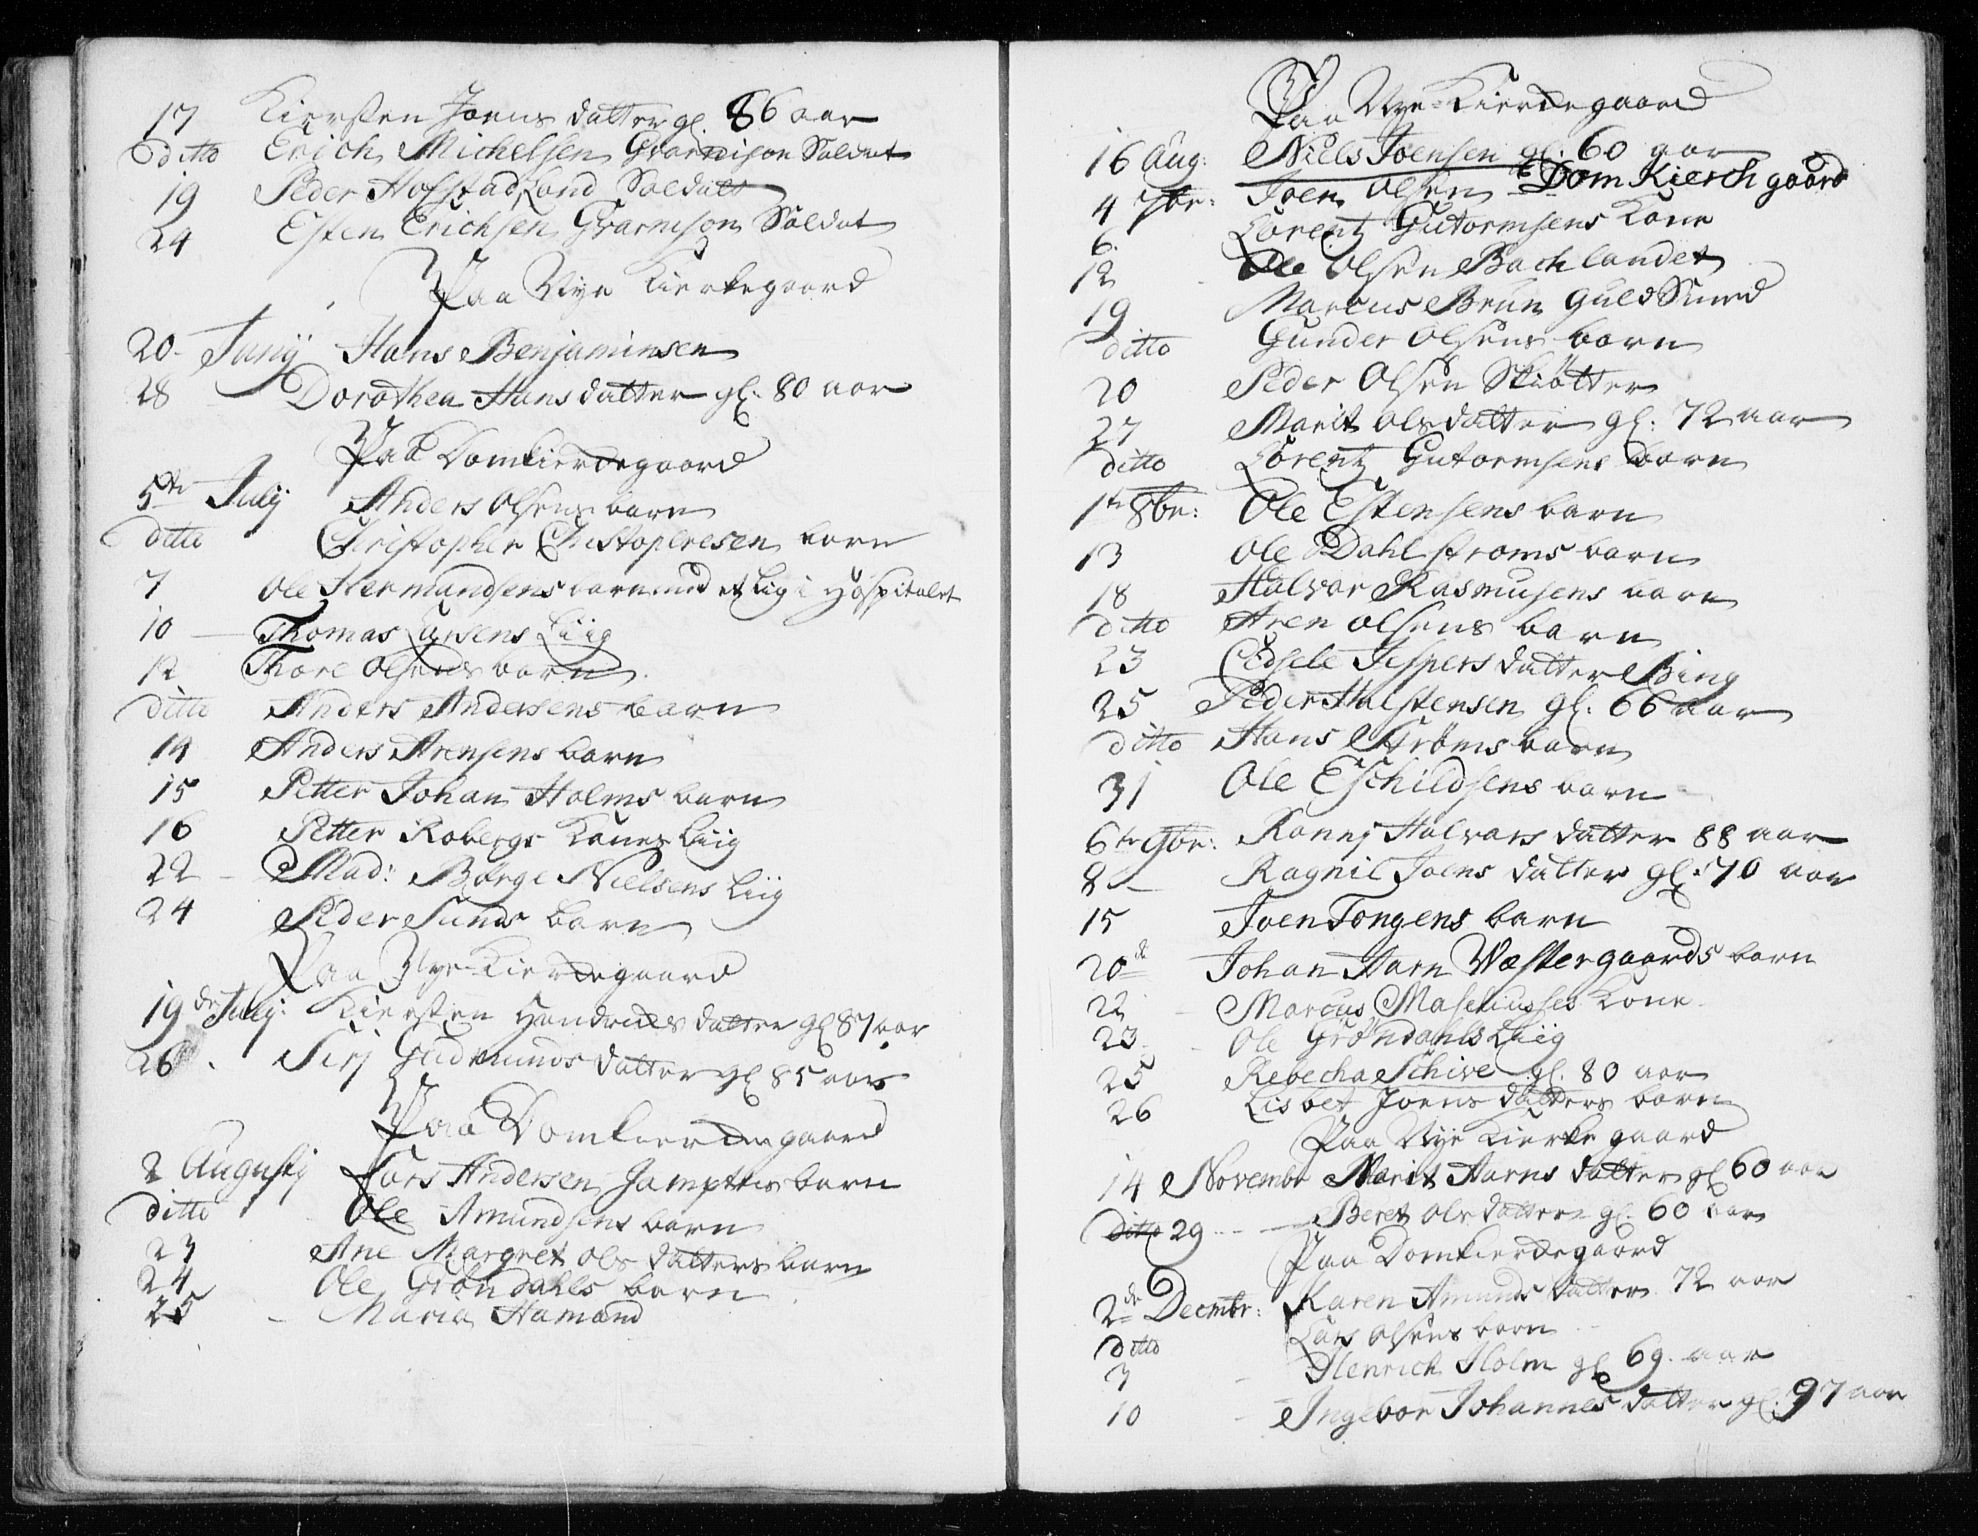 17 Kiersten Joens datter gl. 86 aar
ditto Erich Michelsen Gvarnison Soldat
19 Peder Hofstad Lond Soldat
24 Esten Erichsen Gvarnison Soldat
Paa Nye Kierkegaard
20. Junij Hans Benjaminsen
28 Dorothea Hans datter gl. 80 aar
Paa Domkierkegaard
5te Julij Anders Olsens barn
ditto Christopher Christopersen barn
7 Ole Hermundsens barn med et Liig i Hospitalet
10 Thomas Larsens Liig
12 Thore Olsens barn
ditto Anders Andersens barn
14 Anders Arensens barn
15 Petter Johan Holms barn
16 Petter Robergs Kones Liig
22 - Mad: Børge Nielsens Liig
24 Peder Sunds barn
Paa Nye Kierkegaard
19de Julij: Kiersten Hendrichs datter gl 87 aar
26. Sirj Gudmunds datter gl 85 aar
Paa Domkierkegaard
2 Augustij Lars Andersen Jampters barn
ditto Ole Amundsens barn
23 Ane Margret Ols datters barn
24 Ole Grøndahls barn
25 - Maria Hamand
Paa Nye Kierkegaard
16 Aug: Niels Joensen gl. 60 aar
4 7br: Joen Olsen Dom Kierchgaard
6. Lorentz Gutormsens Kone
12 Ole Olsen Bachlandet
19 Marcus Brun Guldsmed
ditto Gunder Olsens barn
20 Peder Olsen Skiøtter
27 Marit Olsdatter gl: 72 aar
ditto Lorentz Gutormsens barn
1te 8br: Ole Estensens barn
13 Ole Dahlstroms barn
18 Halvor Rasmusens barn
ditto Aren Olsens barn
23 Cidsele Jespers datter Bing
25 Peder Halstensen gl. 66 aar
ditto Hans Strøms barn
31 Ole Eschildsens barn
6te 9br: Ranej Halvors datter 88 aar
8 - Ragnil Joens datter gl: 70 aar
15 Joen Tongens barn
20de Johan Harn Wæstergaards barn
22 - Marcus Kone
23 - Ole Grøndahls Liig
25 Rebecha Schive gl. 80 aar
26 Lisbet Joens datters barn
Paa Nye Kierkegaard
14 Novembr Marit Aarns datter gl 60 aar
ditto 29 - - Beret Ols datter gl. 60 aar
Paa Domkierkegaard
2de Decmbr: Karen Amunds datter 72 aar
ditto Lars Olsens barn
3 - Henrich Holm gl 69. aar
10 - Ingebor Johannes datter gl. 97 aar